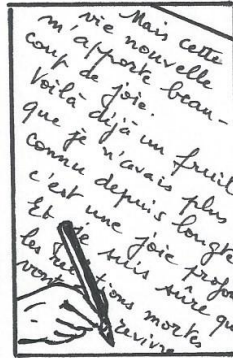 Mais cette
vie nouvelle
m'apporte beau-
coup de joie.
Voilà déjà un fruit
que je n'avais plus
connu depuis longte
c'est une joie profon
Et je suis sûre qu
les tions mortes
revivre